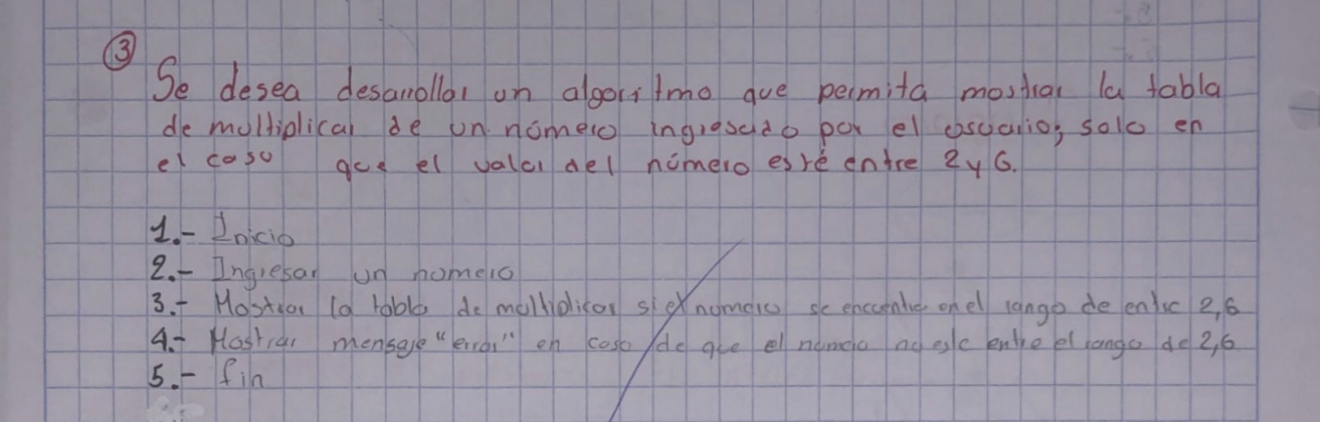 3
Se desea desarrollar un algoritmo que permita mostrar la tabla
de multiplicar de un número ingresado por el usuario, solo en
el caso que el valor del número esté entre 2 y 6.
1.- Inicio
2.- Ingresar un numero
3.- Mostrar la tabla de multiplicar si el numero se encuentre en el rango de entre 2,6
4.- Mostrar mensaje "error" en caso de que el numero no este entre el rango de 2,6
5.- fin